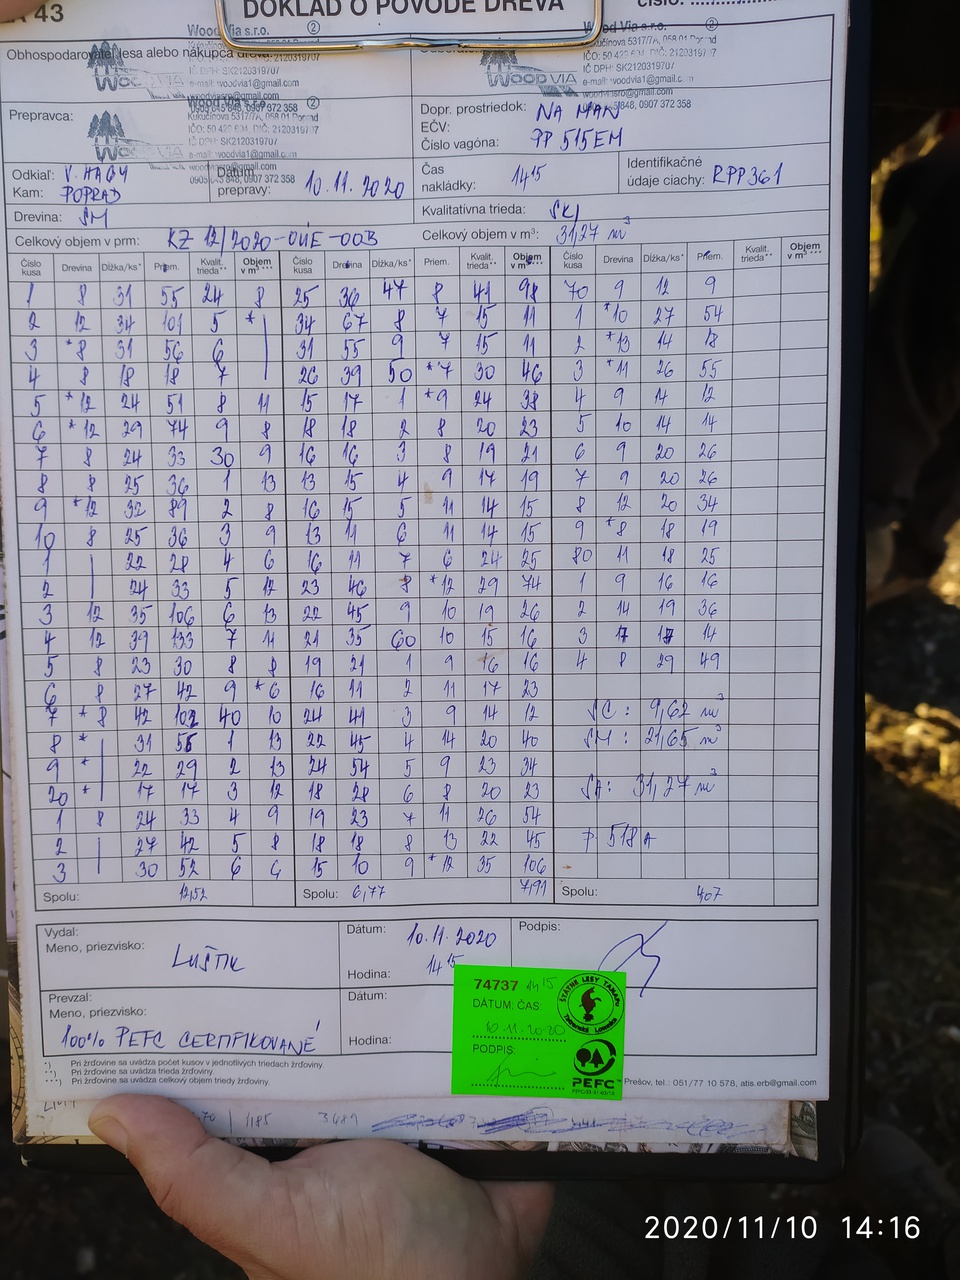 A 43
DOKLAD O PÔVODE DREVA
Číslo: ....................
Wood Via s.r.o. ②
Wood Via s.r.o. ②
Obhospodarovateľ lesa alebo nákupca dreva:
Kukučínova 5317/7A, 058 01 Poprad
IČO: 50 420 631, DIČ: 2120319707
IČ DPH: SK2120319707
IČ DPH: SK2120319707
e-mail: woodvia1@gmail.com
e-mail: woodvia1@gmail.com
WOOD VIA
WOOD VIA
Prepravca:
Wood Via s.r.o. ②
0905 845 848, 0907 372 358
Kukučínova 5317/7A, 058 01 Poprad
IČ DPH: SK2120319707
e-mail: woodvia1@gmail.com
0905 845 848, 0907 372 358
Dopr. prostriedok: NA MAN
EČV:
Číslo vagóna: PP 515EM
Odkiaľ: V. HAGY
Kam: POPRAD
Dátum prepravy: 10.11.2020
Čas nakládky: 14 15
Identifikačné údaje ciachy: RPP361
Drevina: SM
Kvalitatívna trieda: SKJ
Celkový objem v prm: KZ 12/2020-OUE-OOB
Celkový objem v m³: 31,27 m³
Číslo kusa Drevina Dĺžka/ks* Priem. Kvalit. trieda** Objem v m³ *** Číslo kusa Drevina Dĺžka/ks* Priem. Kvalit. trieda** Objem v m³ *** Číslo kusa Drevina Dĺžka/ks* Priem. Kvalit. trieda** Objem v m³ ***
1 8 31 55 24 8 25 36 47 8 41 98 70 9 12 9
2 12 34 101 5 * 34 67 8 7 15 11 1 *10 27 54
3 *8 31 56 6 31 55 9 7 15 11 2 *13 14 18
4 8 18 18 7 26 39 50 *7 30 46 3 *11 26 55
5 *12 24 51 8 11 15 17 1 *9 24 38 4 9 14 12
6 *12 29 74 9 8 18 18 2 8 20 23 5 10 14 14
7 8 24 33 30 9 16 16 3 8 19 21 6 9 20 26
8 8 25 36 1 13 13 15 4 9 17 19 7 9 20 26
9 *12 32 89 2 8 16 15 5 11 14 15 8 12 20 34
10 8 25 36 3 9 13 11 6 11 14 15 9 *8 18 19
1 22 28 4 6 16 11 7 6 24 25 80 11 18 25
2 24 33 5 12 23 46 8 *12 29 74 1 9 16 16
3 12 35 106 6 13 22 45 9 10 19 26 2 14 19 36
4 12 39 133 7 11 21 35 60 10 15 16 3 17 14
5 8 23 30 8 8 19 21 1 9 16 16 4 8 29 49
6 8 27 42 9 *6 16 11 2 11 17 23
7 *8 42 102 40 10 24 41 3 9 14 12 SC: 9,62 m³
8 * 31 56 1 13 22 45 4 14 20 40 SM: 21,65 m³
9 * 22 29 2 13 24 54 5 9 23 34
20 * 17 17 3 12 18 28 6 8 20 23 SA: 31,27 m³
1 8 24 33 4 9 19 23 7 11 26 54
2 27 42 5 8 18 18 8 13 22 45 P 518A
3 30 52 6 6 15 10 9 *12 35 106
Spolu: 12,52 Spolu: 6,77 7,91 Spolu: 4,07
Vydal:
Meno, priezvisko:
LUŠTIK
Dátum: 10.11.2020
Hodina: 14 15
Podpis:
Prevzal:
Meno, priezvisko:
100% PEFC CERTIFIKOVANÉ
Dátum:
Hodina:
74737 14 15
DÁTUM: ČAS:
10.11.2020
PODPIS:
ŠTÁTNE LESY TANAPu
Tatranská Lomnica
PEFC
*) Pri žrďovine sa uvádza počet kusov v jednotlivých triedach žrďoviny.
**) Pri žrďovine sa uvádza trieda žrďoviny.
***) Pri žrďovine sa uvádza celkový objem triedy žrďoviny.
Prešov, tel.: 051/77 10 578, atis.erb@gmail.com
70 1185 3489
2020/11/10 14:16